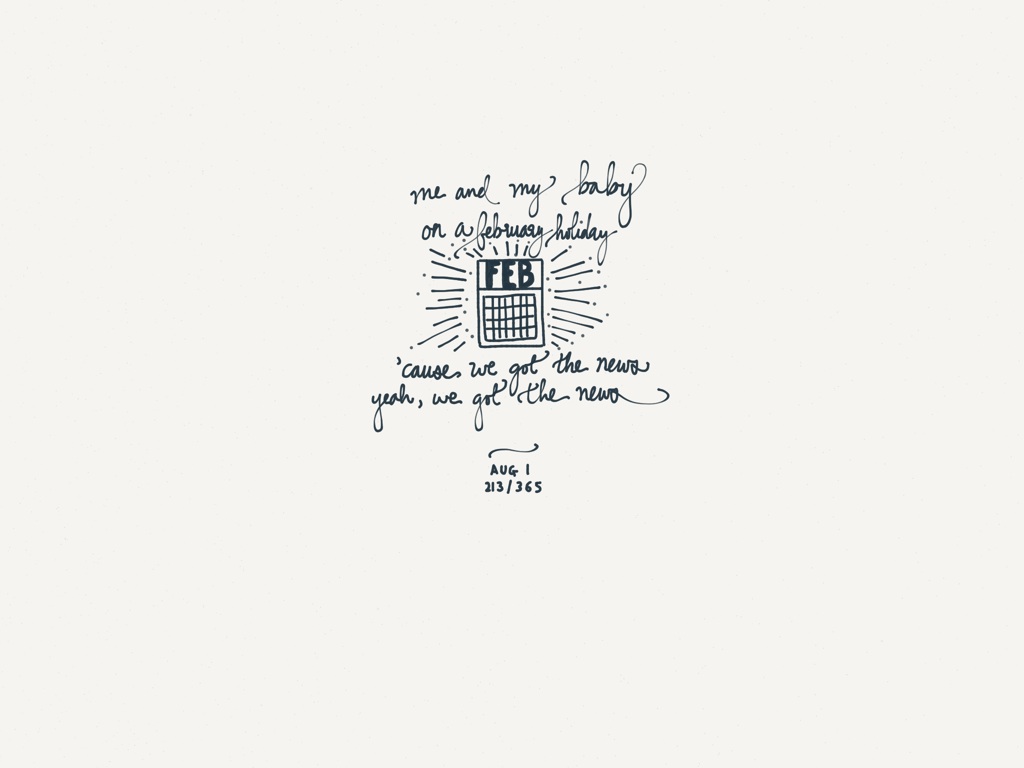 me and my baby
on a february holiday
FEB
'cause we got the news
yeah, we got the news
AUG 1
213/365